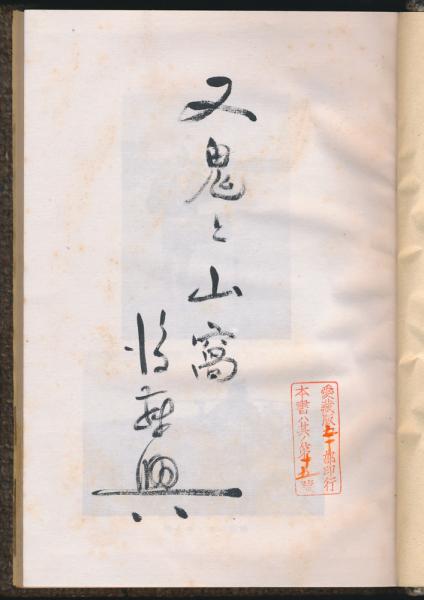 又鬼と山窩
後藤興
愛藏版五十部印行
本書ハ其ノ第十五號